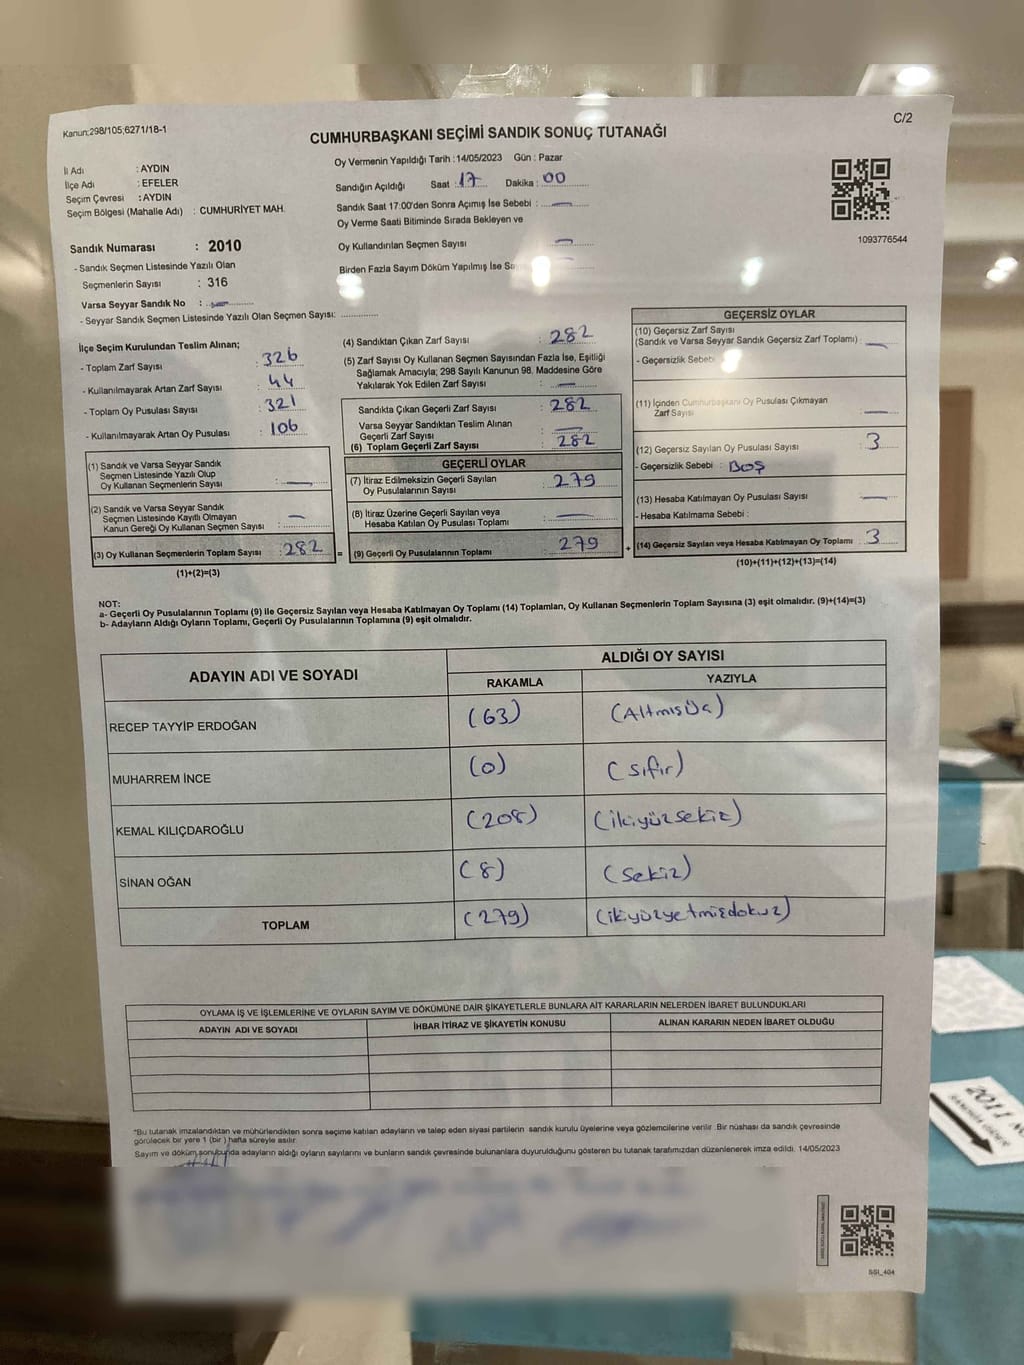 Kanun:298/105;6271/18-1
C/2
CUMHURBAŞKANI SEÇİMİ SANDIK SONUÇ TUTANAĞI
İl Adı : AYDIN
İlçe Adı : EFELER
Seçim Çevresi : AYDIN
Seçim Bölgesi (Mahalle Adı) : CUMHURİYET MAH.
Sandık Numarası : 2010
- Sandık Seçmen Listesinde Yazılı Olan
Seçmenlerin Sayısı : 316
Varsa Seyyar Sandık No : —
- Seyyar Sandık Seçmen Listesinde Yazılı Olan Seçmen Sayısı:
Oy Vermenin Yapıldığı Tarih :14/05/2023 Gün : Pazar
Sandığın Açıldığı Saat :17 Dakika : 00
Sandık Saat 17:00'den Sonra Açımış İse Sebebi : —
Oy Verme Saati Bitiminde Sırada Bekleyen ve
Oy Kullandırılan Seçmen Sayısı : —
Birden Fazla Sayım Döküm Yapılmış İse
1093776544
İlçe Seçim Kurulundan Teslim Alınan;
- Toplam Zarf Sayısı : 326
- Kullanılmayarak Artan Zarf Sayısı : 44
- Toplam Oy Pusulası Sayısı : 321
- Kullanılmayarak Artan Oy Pusulası : 106
(1) Sandık ve Varsa Seyyar Sandık
Seçmen Listesinde Yazılı Olup
Oy Kullanan Seçmenlerin Sayısı : —
(2) Sandık ve Varsa Seyyar Sandık
Seçmen Listesinde Kayıtlı Olmayan
Kanun Gereği Oy Kullanan Seçmen Sayısı : —
(3) Oy Kullanan Seçmenlerin Toplam Sayısı : 282
(1)+(2)=(3)
(4) Sandıktan Çıkan Zarf Sayısı : 282
(5) Zarf Sayısı Oy Kullanan Seçmen Sayısından Fazla İse, Eşitliği
Sağlamak Amacıyla; 298 Sayılı Kanunun 98. Maddesine Göre
Yakılarak Yok Edilen Zarf Sayısı : —
Sandıkta Çıkan Geçerli Zarf Sayısı : 282
Varsa Seyyar Sandıktan Teslim Alınan
Geçerli Zarf Sayısı : —
(6) Toplam Geçerli Zarf Sayısı : 282
GEÇERLİ OYLAR
(7) İtiraz Edilmeksizin Geçerli Sayılan
Oy Pusulalarının Sayısı : 279
(8) İtiraz Üzerine Geçerli Sayılan veya
Hesaba Katılan Oy Pusulası Toplamı : —
= (9) Geçerli Oy Pusulalarının Toplamı : 279
GEÇERSİZ OYLAR
(10) Geçersiz Zarf Sayısı
(Sandık ve Varsa Seyyar Sandık Geçersiz Zarf Toplamı) : —
- Geçersizlik Sebebi
(11) İçinden Cumhurbaşkanı Oy Pusulası Çıkmayan
Zarf Sayısı : —
(12) Geçersiz Sayılan Oy Pusulası Sayısı : 3
- Geçersizlik Sebebi : BOŞ
(13) Hesaba Katılmayan Oy Pusulası Sayısı : —
- Hesaba Katılmama Sebebi :
+ (14) Geçersiz Sayılan veya Hesaba Katılmayan Oy Toplamı : 3
(10)+(11)+(12)+(13)=(14)
NOT:
a- Geçerli Oy Pusulalarının Toplamı (9) ile Geçersiz Sayılan veya Hesaba Katılmayan Oy Toplamı (14) Toplamları, Oy Kullanan Seçmenlerin Toplam Sayısına (3) eşit olmalıdır. (9)+(14)=(3)
b- Adayların Aldığı Oyların Toplamı, Geçerli Oy Pusulalarının Toplamına (9) eşit olmalıdır.
ADAYIN ADI VE SOYADI
ALDIĞI OY SAYISI
RAKAMLA YAZIYLA
RECEP TAYYİP ERDOĞAN (63) (Altmışüç)
MUHARREM İNCE (0) (sıfır)
KEMAL KILIÇDAROĞLU (208) (ikiyüzsekiz)
SİNAN OĞAN (8) (sekiz)
TOPLAM (279) (ikiyüzyetmişdokuz)
OYLAMA İŞ VE İŞLEMLERİNE VE OYLARIN SAYIM VE DÖKÜMÜNE DAİR ŞİKAYETLERLE BUNLARA AİT KARARLARIN NELERDEN İBARET BULUNDUKLARI
ADAYIN ADI VE SOYADI İHBAR İTİRAZ VE ŞİKAYETİN KONUSU ALINAN KARARIN NEDEN İBARET OLDUĞU
*Bu tutanak imzalandıktan ve mühürlendikten sonra seçime katılan adayların ve talep eden siyasi partilerin sandık kurulu üyelerine veya gözlemcilerine verilir. Bir nüshası da sandık çevresinde
görülecek bir yere 1 (bir) hafta süreyle asılır.
Sayım ve döküm sonucunda adayların aldığı oyların sayılarını ve bunların sandık çevresinde bulunanlara duyurulduğunu gösteren bu tutanak tarafımızdan düzenlenerek imza edildi. 14/05/2023
2011